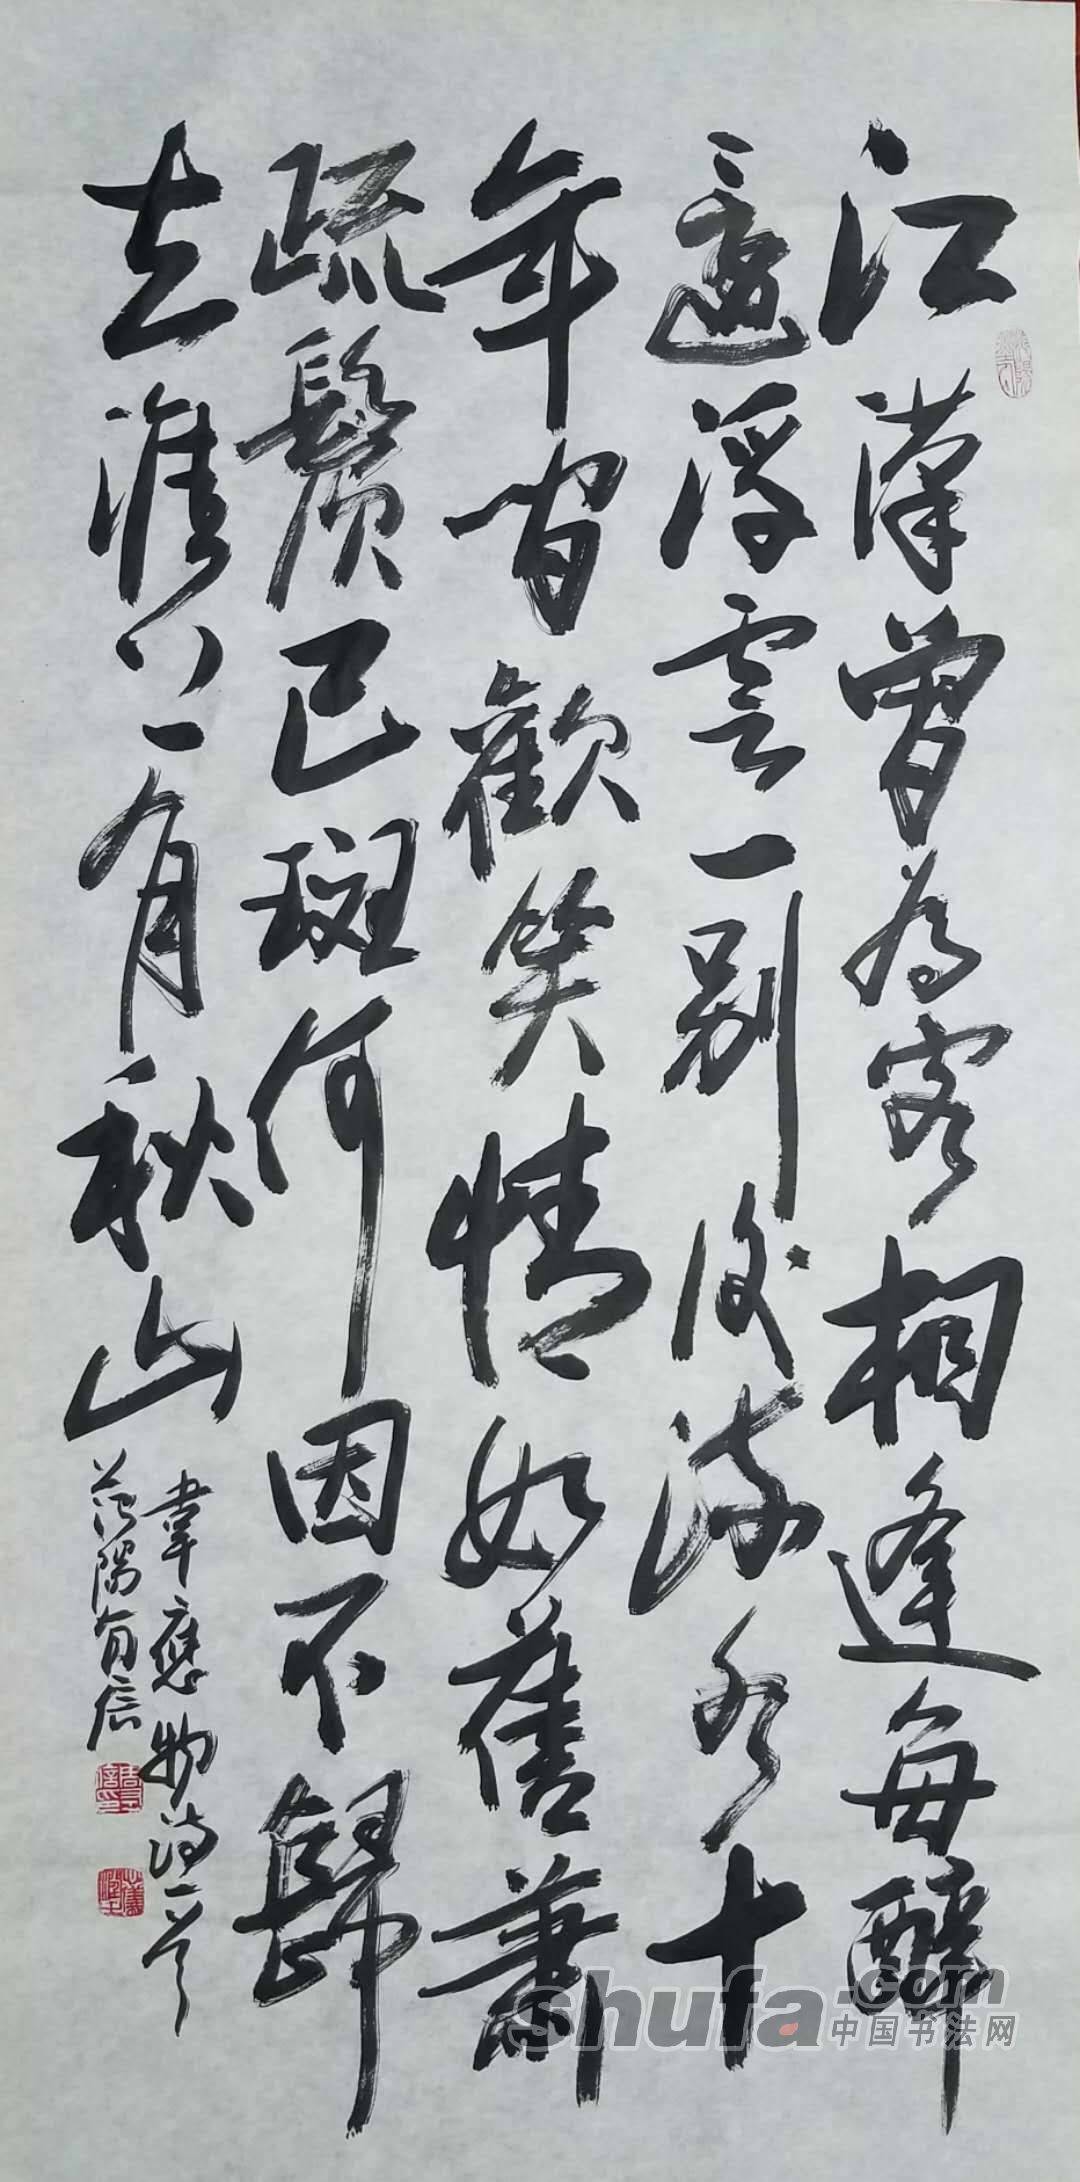 江漢曽為客相逢每醉
還浮雲一别後流水十
年間歡笑情如舊蕭
疏鬢已斑何因不歸
去淮上有秋山
韋應物詩一首
范陽有信
shufa.com
中国书法网